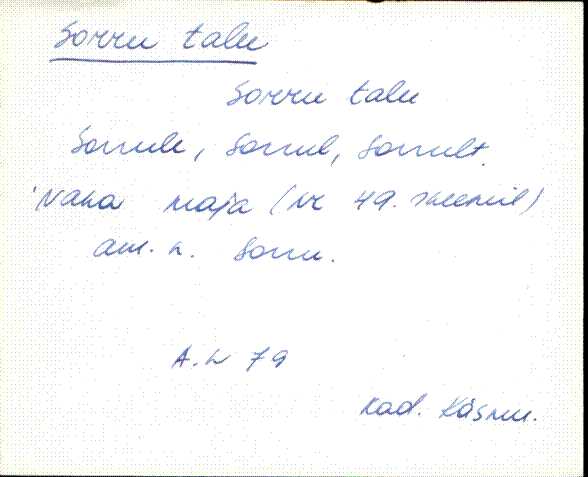 Sorru talu
Sorru talu
Sorrule, Sorrul, Sorrult.
Vana maja (nr 49. skeemil)
am. n. Sorru.
A. L 79
Kad. Käsmu.